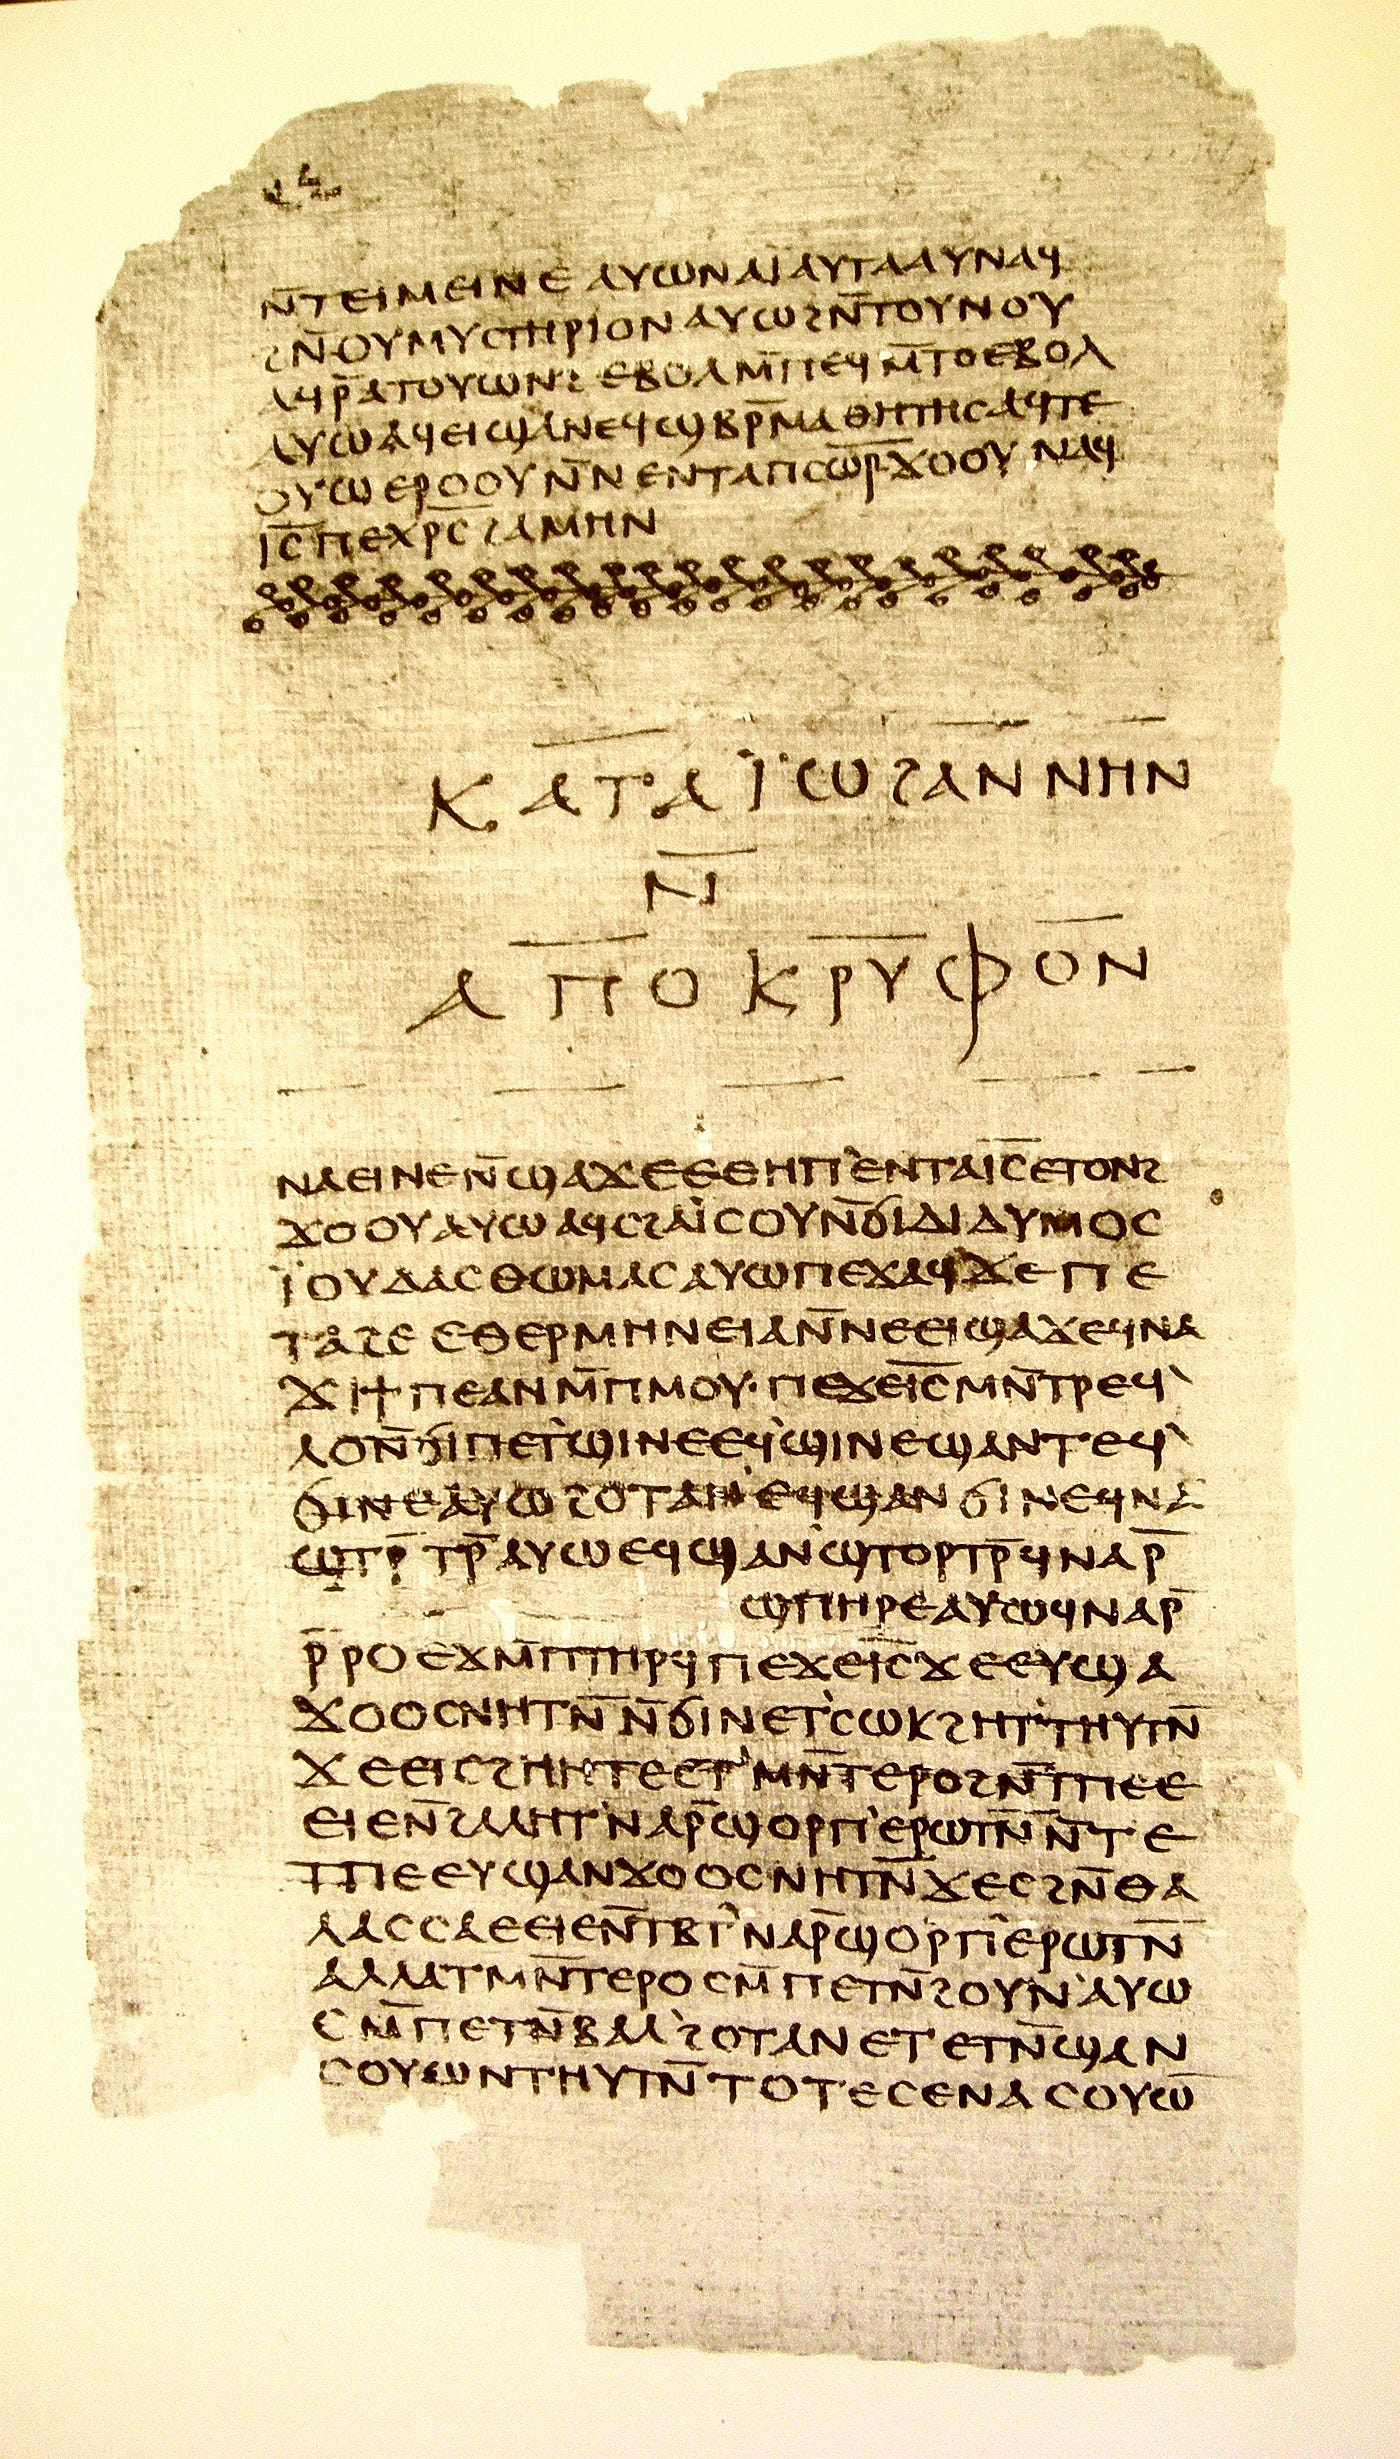 ⲗⲃ
ⲛ̄ⲧⲉⲓⲙⲉⲓⲛⲉ ⲁⲩⲱ ⲛⲁⲓ̈ ⲁⲩⲧⲁⲁⲩ ⲛⲁϥ
ϩⲛ̄ ⲟⲩⲙⲩⲥⲧⲏⲣⲓⲟⲛ ⲁⲩⲱ ϩⲛ̄ ⲧⲟⲩⲛⲟⲩ
ⲁϥⲣ̄ ⲁⲧⲟⲩⲱⲛϩ ⲉⲃⲟⲗ ⲙ̄ⲡⲉϥⲙ̄ⲧⲟ ⲉⲃⲟⲗ
ⲁⲩⲱ ⲁϥⲉⲓ ϣⲁ ⲛⲉϥϣⲃⲣ̄ⲙⲁⲑⲏⲧⲏⲥ ⲁϥϯⲉ
ⲟⲩⲱ ⲉⲣⲟⲟⲩ ⲛ̄ⲛⲉⲛⲧⲁ ⲡⲥⲱ̄ⲣ̄ ϫⲟⲟⲩ ⲛⲁϥ
ⲓⲥ̄ ⲡⲉⲭⲣⲥ̄ ϩⲁⲙⲏⲛ
ⲕⲁⲧⲁ ⲓ̈ⲱϩⲁⲛⲛⲏⲛ
ⲛ̄
ⲁⲡⲟⲕⲣⲩⲫⲟⲛ
ⲛⲁⲉⲓ ⲛⲉ ⲛ̄ϣⲁϫⲉ ⲉⲑⲏⲡ ⲉⲛⲧⲁ ⲓⲥ̄ ⲉⲧⲟⲛϩ
ϫⲟⲟⲩ ⲁⲩⲱ ⲁϥⲥϩⲁⲓ̈ⲥⲟⲩ ⲛ̄ϭⲓ ⲇⲓⲇⲩⲙⲟⲥ
ⲓ̈ⲟⲩⲇⲁⲥ ⲑⲱⲙⲁⲥ ⲁⲩⲱ ⲡⲉϫⲁϥ ϫⲉ ⲡⲉ
ⲧⲁϩⲉ ⲉⲑⲉⲣⲙⲏⲛⲉⲓⲁ ⲛ̄ⲛⲉⲉⲓϣⲁϫⲉ ϥⲛⲁ
ϫⲓ ϯⲡⲉ ⲁⲛ ⲙ̄ⲡⲙⲟⲩ· ⲡⲉϫⲉ ⲓⲥ̄ ⲙⲛ̄ⲧⲣⲉϥ
ⲗⲟ ⲛ̄ϭⲓ ⲡⲉⲧϣⲓⲛⲉ ⲉϥϣⲓⲛⲉ ϣⲁⲛⲧⲉϥ
ϭⲓⲛⲉ ⲁⲩⲱ ϩⲟⲧⲁⲛ ⲉϥϣⲁⲛϭⲓⲛⲉ ϥⲛⲁ
ϣⲧⲣ̄ⲧⲣ̄ ⲁⲩⲱ ⲉϥϣⲁⲛϣⲧⲟⲣⲧⲣ̄ ϥⲛⲁⲣ̄
ϣⲡⲏⲣⲉ ⲁⲩⲱ ϥⲛⲁⲣ̄
ⲣ̄ⲣⲟ ⲉϫⲙ̄ ⲡⲧⲏⲣϥ ⲡⲉϫⲉ ⲓⲥ̄ ϫⲉ ⲉⲩϣⲁ
ϫⲟⲟⲥ ⲛⲏⲧⲛ̄ ⲛ̄ϭⲓ ⲛⲉⲧⲥⲱⲕ ϩⲏⲧ ⲧⲏⲩⲧⲛ̄
ϫⲉ ⲉⲓⲥϩⲏⲏⲧⲉ ⲉⲧⲙⲛ̄ⲧⲉⲣⲟ ϩⲛ̄ ⲧⲡⲉ ⲉ
ⲉⲓⲉ ⲛ̄ϩⲁⲗⲏⲧ ⲛⲁⲣ̄ ϣⲟⲣⲡ ⲉⲣⲱⲧⲛ̄ ⲛ̄ⲧⲉ
ⲧⲡⲉ ⲉⲩϣⲁⲛϫⲟⲟⲥ ⲛⲏⲧⲛ̄ ϫⲉ ⲥϩⲛ̄ ⲑⲁ
ⲗⲁⲥⲥⲁ ⲉⲉⲓⲉ ⲛ̄ⲧⲃⲧ ⲛⲁⲣ̄ ϣⲟⲣⲡ ⲉⲣⲱⲧⲛ̄
ⲁⲗⲗⲁ ⲧⲙⲛ̄ⲧⲉⲣⲟ ⲥⲙ̄ⲡⲉⲧⲛ̄ϩⲟⲩⲛ ⲁⲩⲱ
ⲥⲙ̄ⲡⲉⲧⲛ̄ⲃⲁⲗ ϩⲟⲧⲁⲛ ⲉⲧⲉⲧⲛ̄ϣⲁⲛ
ⲥⲟⲩⲱⲛ ⲧⲏⲩⲧⲛ̄ ⲧⲟⲧⲉ ⲥⲉⲛⲁⲥⲟⲩⲱ